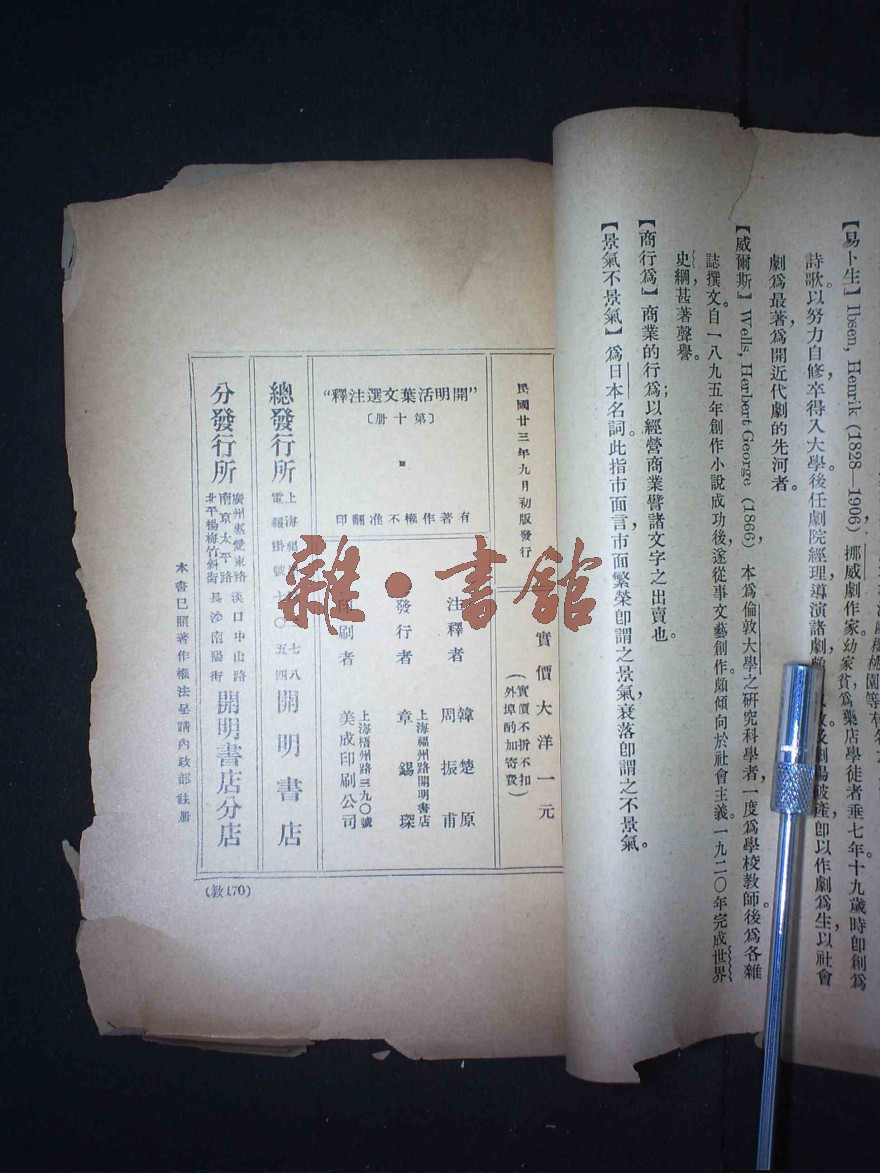 【易卜生】 Ibsen, Henrik (1828—1906) 挪威劇作家。幼家貧，爲藥店學徒者垂七年。十九歲時卽創爲
詩歌。以努力自修，卒得入大學。後任劇院經理，導演諸劇，
產，卽以作劇爲生，以社會
劇爲最著，爲開近代劇的先河者。
【威爾斯】 Wells, Herbert George (1866) 本爲倫敦大學之研究科學者，一度爲學校教師。後爲各雜
誌撰文。自一八九五年創作小說成功後，遂從事文藝創作。頗傾向於社會主義。一九二〇年完成世界
史綱，甚著聲譽。
【商行爲】 商業的行爲；以經營商業譬諸文字之出賣也。
【景氣不景氣】 爲日本名詞。此指市面言。市面繁榮卽謂之景氣，衰落卽謂之不景氣。
民國廿三年九月初版發行
實價大洋一元
（實價不折不扣
外埠酌加寄費）
“開明活葉文選注釋”
〔第十册〕
有著作權不准翻印
注釋者 韓楚原
周振甫
發行者 上海福州路開明書店
章錫琛
印刷者 上海梧州路三九〇號
美成印刷公司
總發行所 上海福
七八
電報掛號七〇五四
開明書店
分發行所 廣州惠愛東路 漢口中山路
南京太平路
北平楊梅竹斜街 長沙南陽街
開明書店分店
本書已照著作權法呈請內政部註册
（教170）
雜·書館